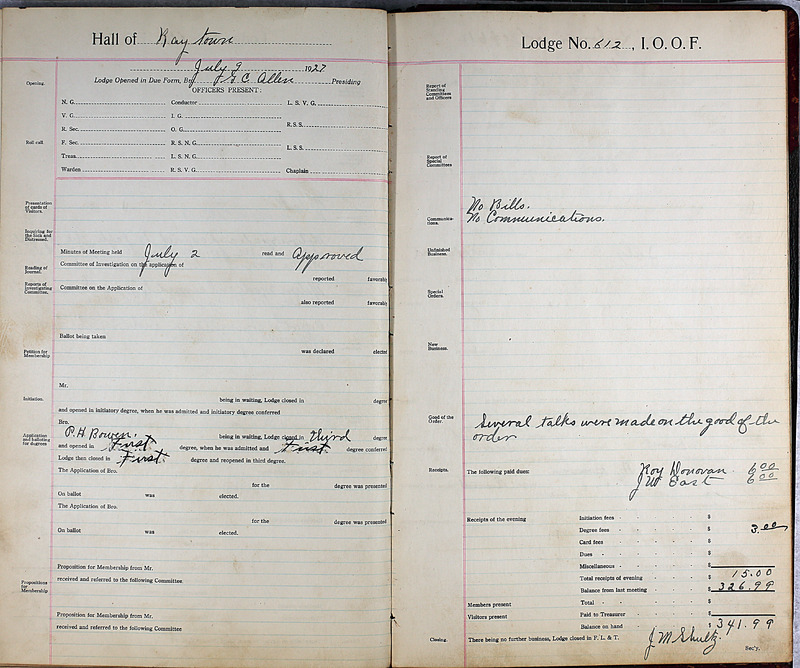 Hall of Raytown
July 9 1927
Opening.
Lodge Opened in Due Form, By J G C Allen Presiding
OFFICERS PRESENT:
N. G. Conductor L. S. V. G.
V. G. I. G.
R. S. S.
R. Sec. O. G.
Roll call
F. Sec. R. S. N. G.
L. S. S.
Treas. L. S. N. G.
Warden R. S. V. G. Chaplain
Presentation of cards of Visitors.
Inquiring for the Sick and Distressed.
Minutes of Meeting held July 2 read and approved
Reading of Journal.
Committee of Investigation on the application of
reported favorab
Reports of Investigating Committee.
Committee on the Application of
also reported favorab
Ballot being taken
Petition for Membership
was declared elected
Mr.
Initiation.
being in waiting, Lodge closed in degree
and opened in initiatory degree, when he was admitted and initiatory degree conferred
Bro.
Application and balloting for degrees
P. H. Bowen. being in waiting, Lodge closed in Third degree
and opened in First degree, when he was admitted and First degree conferred
Lodge then closed in First degree and reopened in third degree.
The Application of Bro.
for the degree was presented
On ballot was elected.
The Application of Bro.
for the degree was presented
On ballot was elected.
Proposition for Membership from Mr.
Propositions for Membership
received and referred to the following Committee.
Proposition for Membership from Mr.
received and referred to the following Committee
Lodge No. 612, I. O. O. F.
Report of Standing Committees and Officers
Report of Special Committees
No Bills.
Communications.
No Communications.
Unfinished Business.
Special Orders.
New Business.
Good of the Order.
Several talks were made on the good of the
order
Receipts.
The following paid dues: Roy Donovan 6 00
J W East 6 00
Receipts of the evening Initiation fees $
Degree fees $ 3.00
Card fees $
Dues $
Miscellaneous $
Total receipts of evening $ 15.00
Balance from last meeting $ 326.99
Members present Total $
Visitors present Paid to Treasurer $
Balance on hand $ 341.99
Closing.
There being no further business, Lodge closed in F. L. & T. J. M Shultz.
Sec'y.